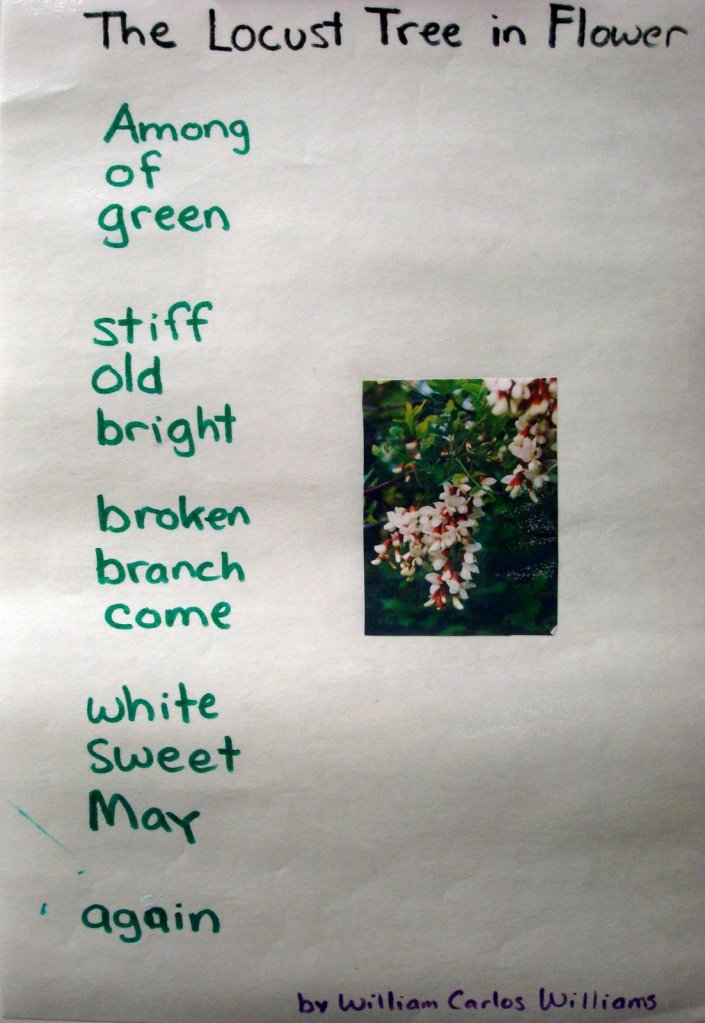 The Locust Tree in Flower
Among
of
green
stiff
old
bright
broken
branch
come
white
sweet
May
again
by William Carlos Williams